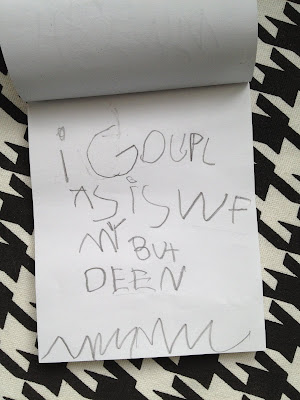 i GOUPL
ASiSWF
MY BUt
DEEN